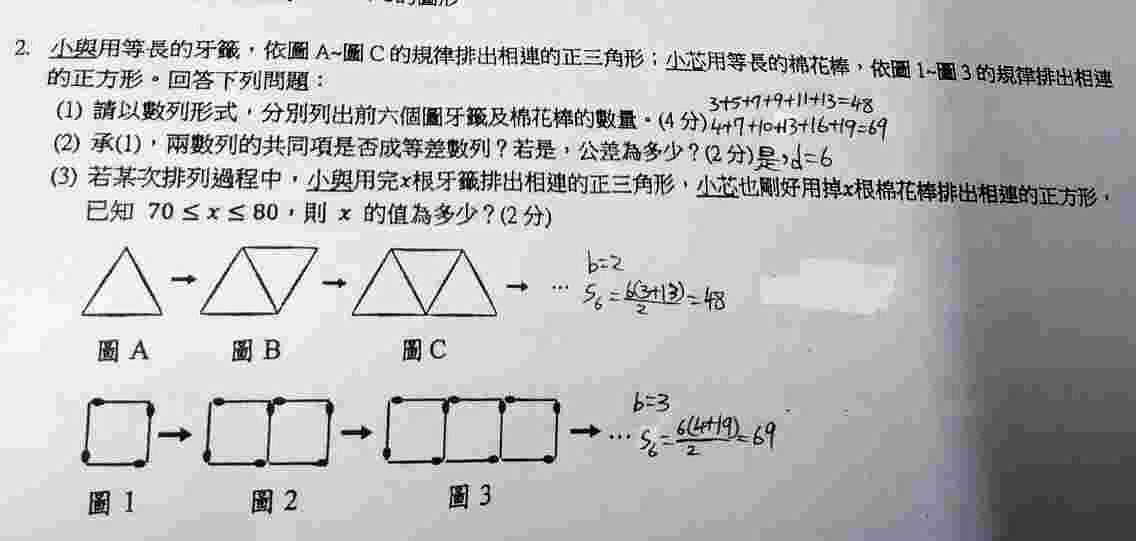 的圖形
2. 小與用等長的牙籤，依圖 A~圖 C 的規律排出相連的正三角形；小芯用等長的棉花棒，依圖 1~圖 3 的規律排出相連
的正方形。回答下列問題：
(1) 請以數列形式，分別列出前六個圖牙籤及棉花棒的數量。(4 分) 3+5+7+9+11+13=48
4+7+10+13+16+19=69
(2) 承(1)，兩數列的共同項是否成等差數列？若是，公差為多少？(2 分) 是，d=6
(3) 若某次排列過程中，小與用完x根牙籤排出相連的正三角形，小芯也剛好用掉x根棉花棒排出相連的正方形，
已知 70 ≤ x ≤ 80，則 x 的值為多少？(2 分)
…
b=2
S₆=6(3+13)/2=48
圖 A 圖 B 圖 C
…
b=3
S₆=6(4+19)/2=69
圖 1 圖 2 圖 3